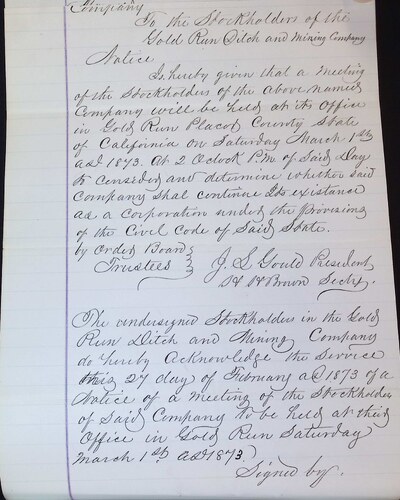 Company
To the Stockholders of the
Gold Run Ditch and Mining Company
Notice
Is hereby given that a meeting
of the Stockholders of the above named
Company will be held at its Office
in Gold Run Placer County State
of California on Saturday March 1st
ad 1873. At 2 Oclock P.m of Said Day
to consider and determine whether said
Company shal continue Its existance
as a corporation under the Provisions
of the Civil Code of Said State.
by Order Board
Trustees
J. L Gould President
H H Brown Secty.
The undersigned Stockholders in the Gold
Run Ditch and Mining Company
do hereby Acknowledge the Service
this 27 day of February ad 1873 of a
Notice of a meeting of the Stockholders
of Said Company to be held at their
Office in Gold Run Saturday
March 1st ad 1873
Signed by.